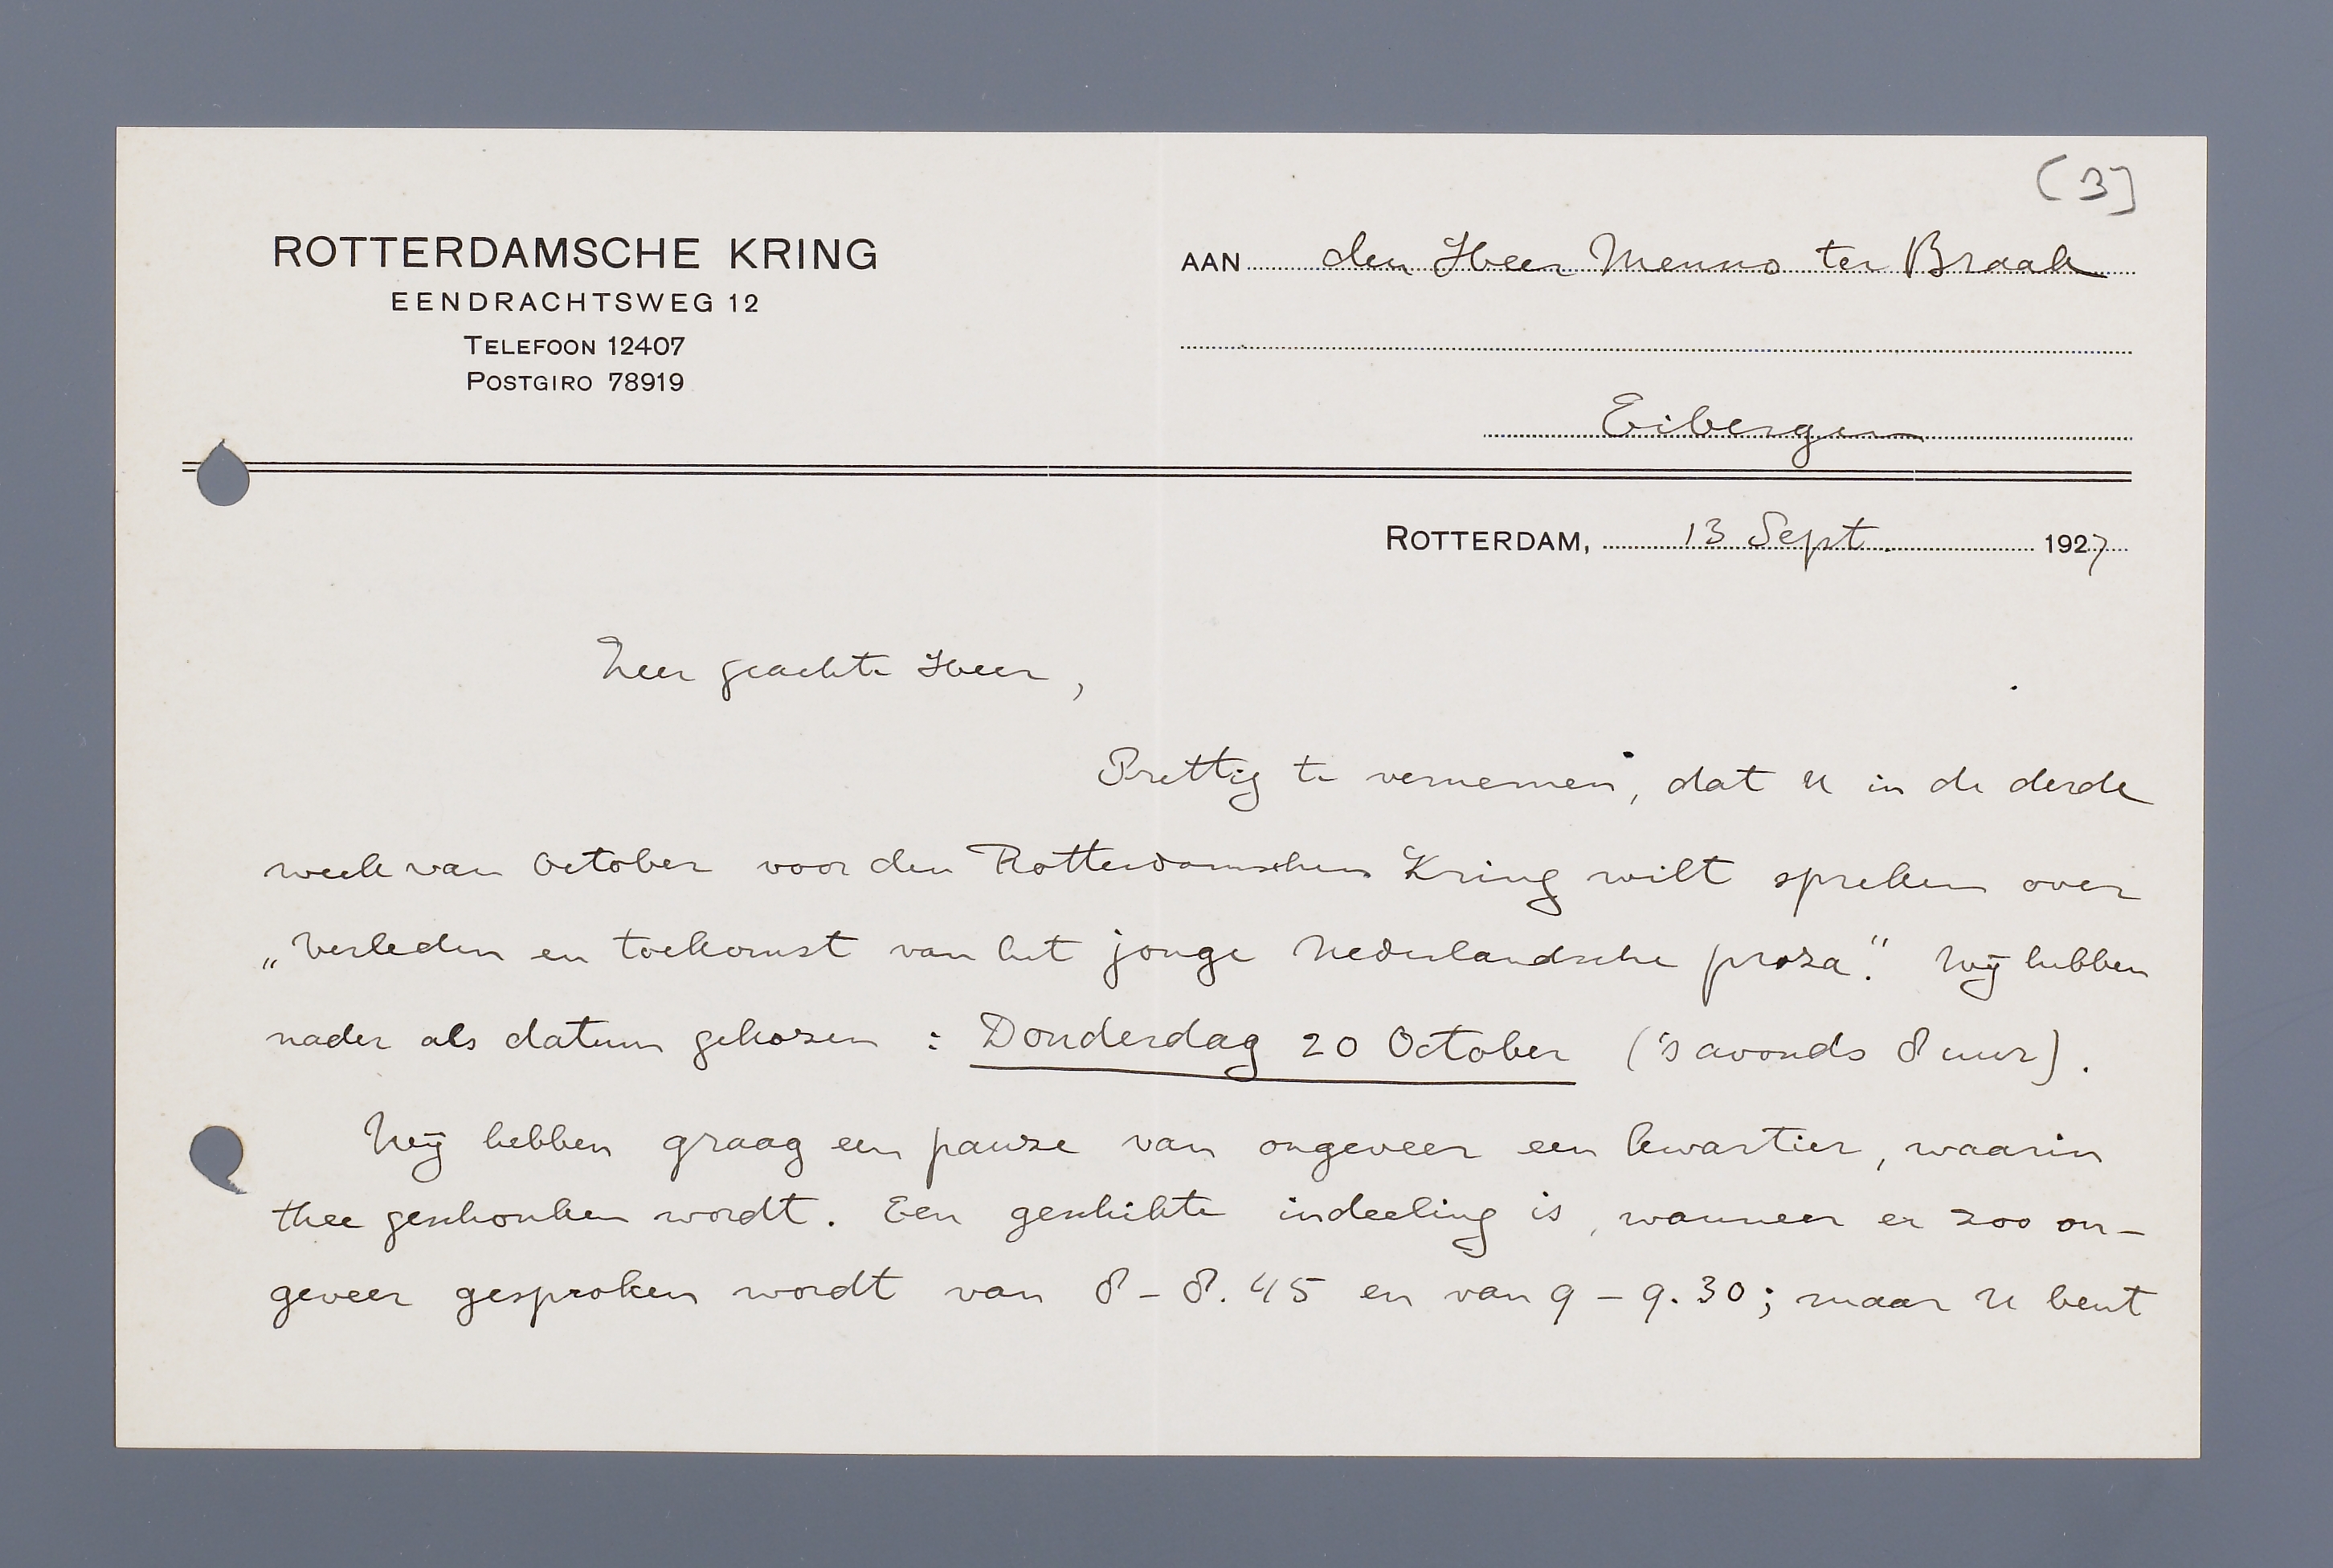 (3)
ROTTERDAMSCHE KRING
EENDRACHTSWEG 12
TELEFOON 12407
POSTGIRO 78919
AAN den Heer Menno ter Braak
Eibergen
ROTTERDAM, 13 Sept. 1927
Zeer geachte Heer,
Prettig te vernemen, dat U in de derde
week van October voor den Rotterdamschen Kring wilt spreken over
„Verleden en toekomst van het jonge Nederlandsche proza." Wij hebben
nader als datum gekozen : Donderdag 20 October ('s avonds 8 uur).
Wij hebben graag een pauze van ongeveer een kwartier, waarin
thee geschonken wordt. Een geschikte indeeling is, wanneer er zoo on-
geveer gesproken wordt van 8 - 8.45 en van 9 - 9.30; maar U bent